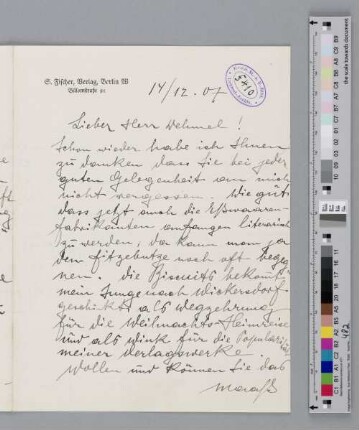 S. Fischer, Verlag, Berlin W
Bülowstraße 90.
14/12.07
Lieber Herr Dehmel!
Schon wieder habe ich Ihnen
zu danken dass Sie bei jeder
guten Gelegenheit an mich
nicht vergessen. Wie gut
dass jetzt auch die Esswaaren-
fabrikanten anfangen literarisch
zu werden, da kann man ja
dem Fitzebutze noch oft begeg-
nen. Die Biscuits bekommt
mein Junge nach Wickersdorf
geschickt als Wegzehrung
für die Weihnachts-Heimreise
und als Wink für die Popularität
meiner Verlagswerke.
Wollen und können Sie das